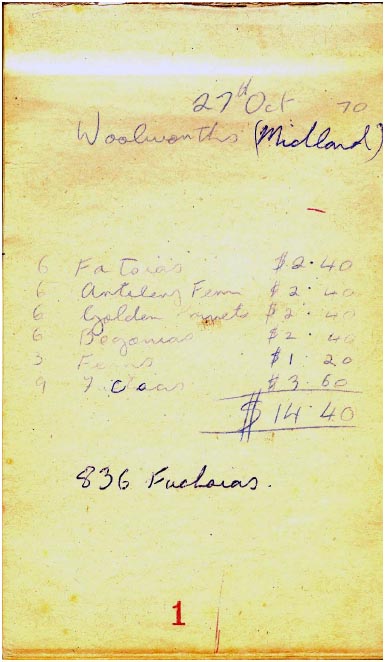 27th Oct 70
Woolworths (Midland)
6 Fatsias $2.40
6 Fern $2.40
6 Golden $2.40
6 Begonias $2.40
3 Ferns $1.20
9 $3.60
$14.40
836 Fuchsias.
1